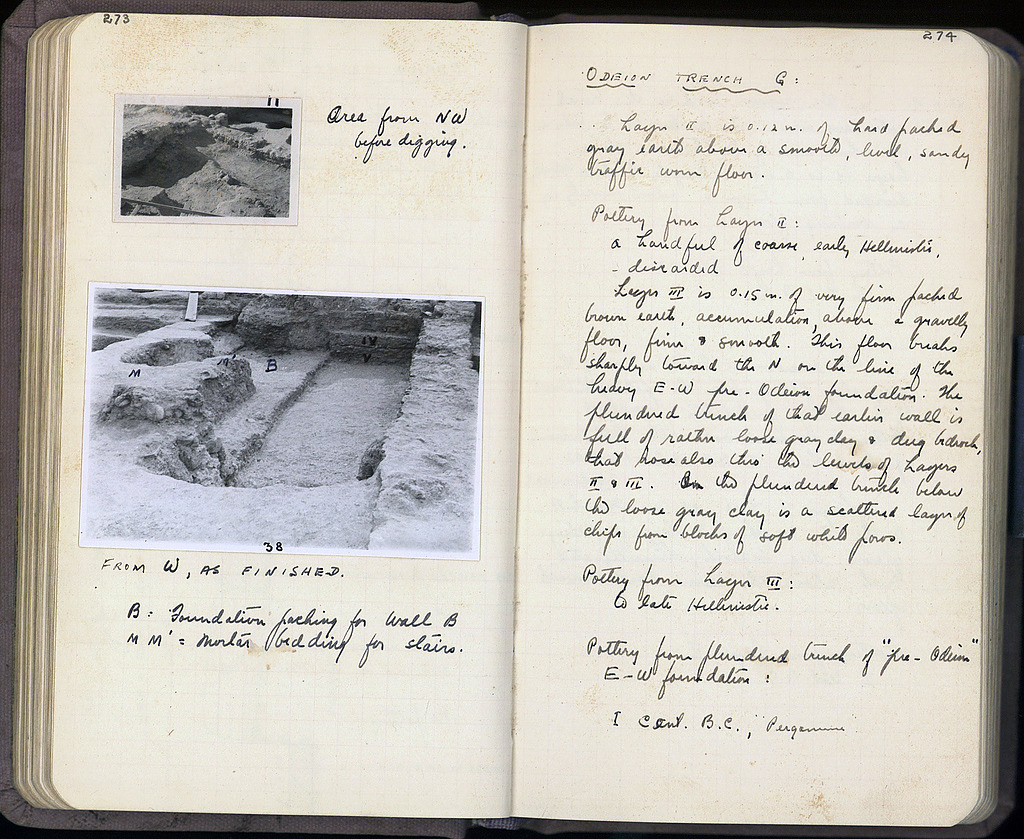 273
11
Area from NW
before digging.
M
M'
B
IV
V
38
FROM W, AS FINISHED.
B: Foundation packing for Wall B
M M' = Mortar bedding for stairs.
274
ODEION TRENCH G:
Layer II is 0.12 m. of hard packed
gray earth above a smooth, level, sandy
traffic worn floor.
Pottery from Layer II:
a handful of coarse, early Hellenistic,
- discarded
Layer III is 0.15 m. of very firm packed
brown earth, accumulation, above a gravelly
floor, firm & smooth. This floor breaks
sharply toward the N on the line of the
heavy E-W pre-Odeion foundation. The
plundered trench of that earlier wall is
full of rather loose gray clay & dug bedrock,
that rose also thro the levels of Layers
II & III. In the plundered trench below
the loose gray clay is a scattered layer of
chips from blocks of soft white poros.
Pottery from Layer III:
to late Hellenistic.
Pottery from plundered trench of "pre-Odeion"
E-W foundation:
I Cent. B.C., Pergamene